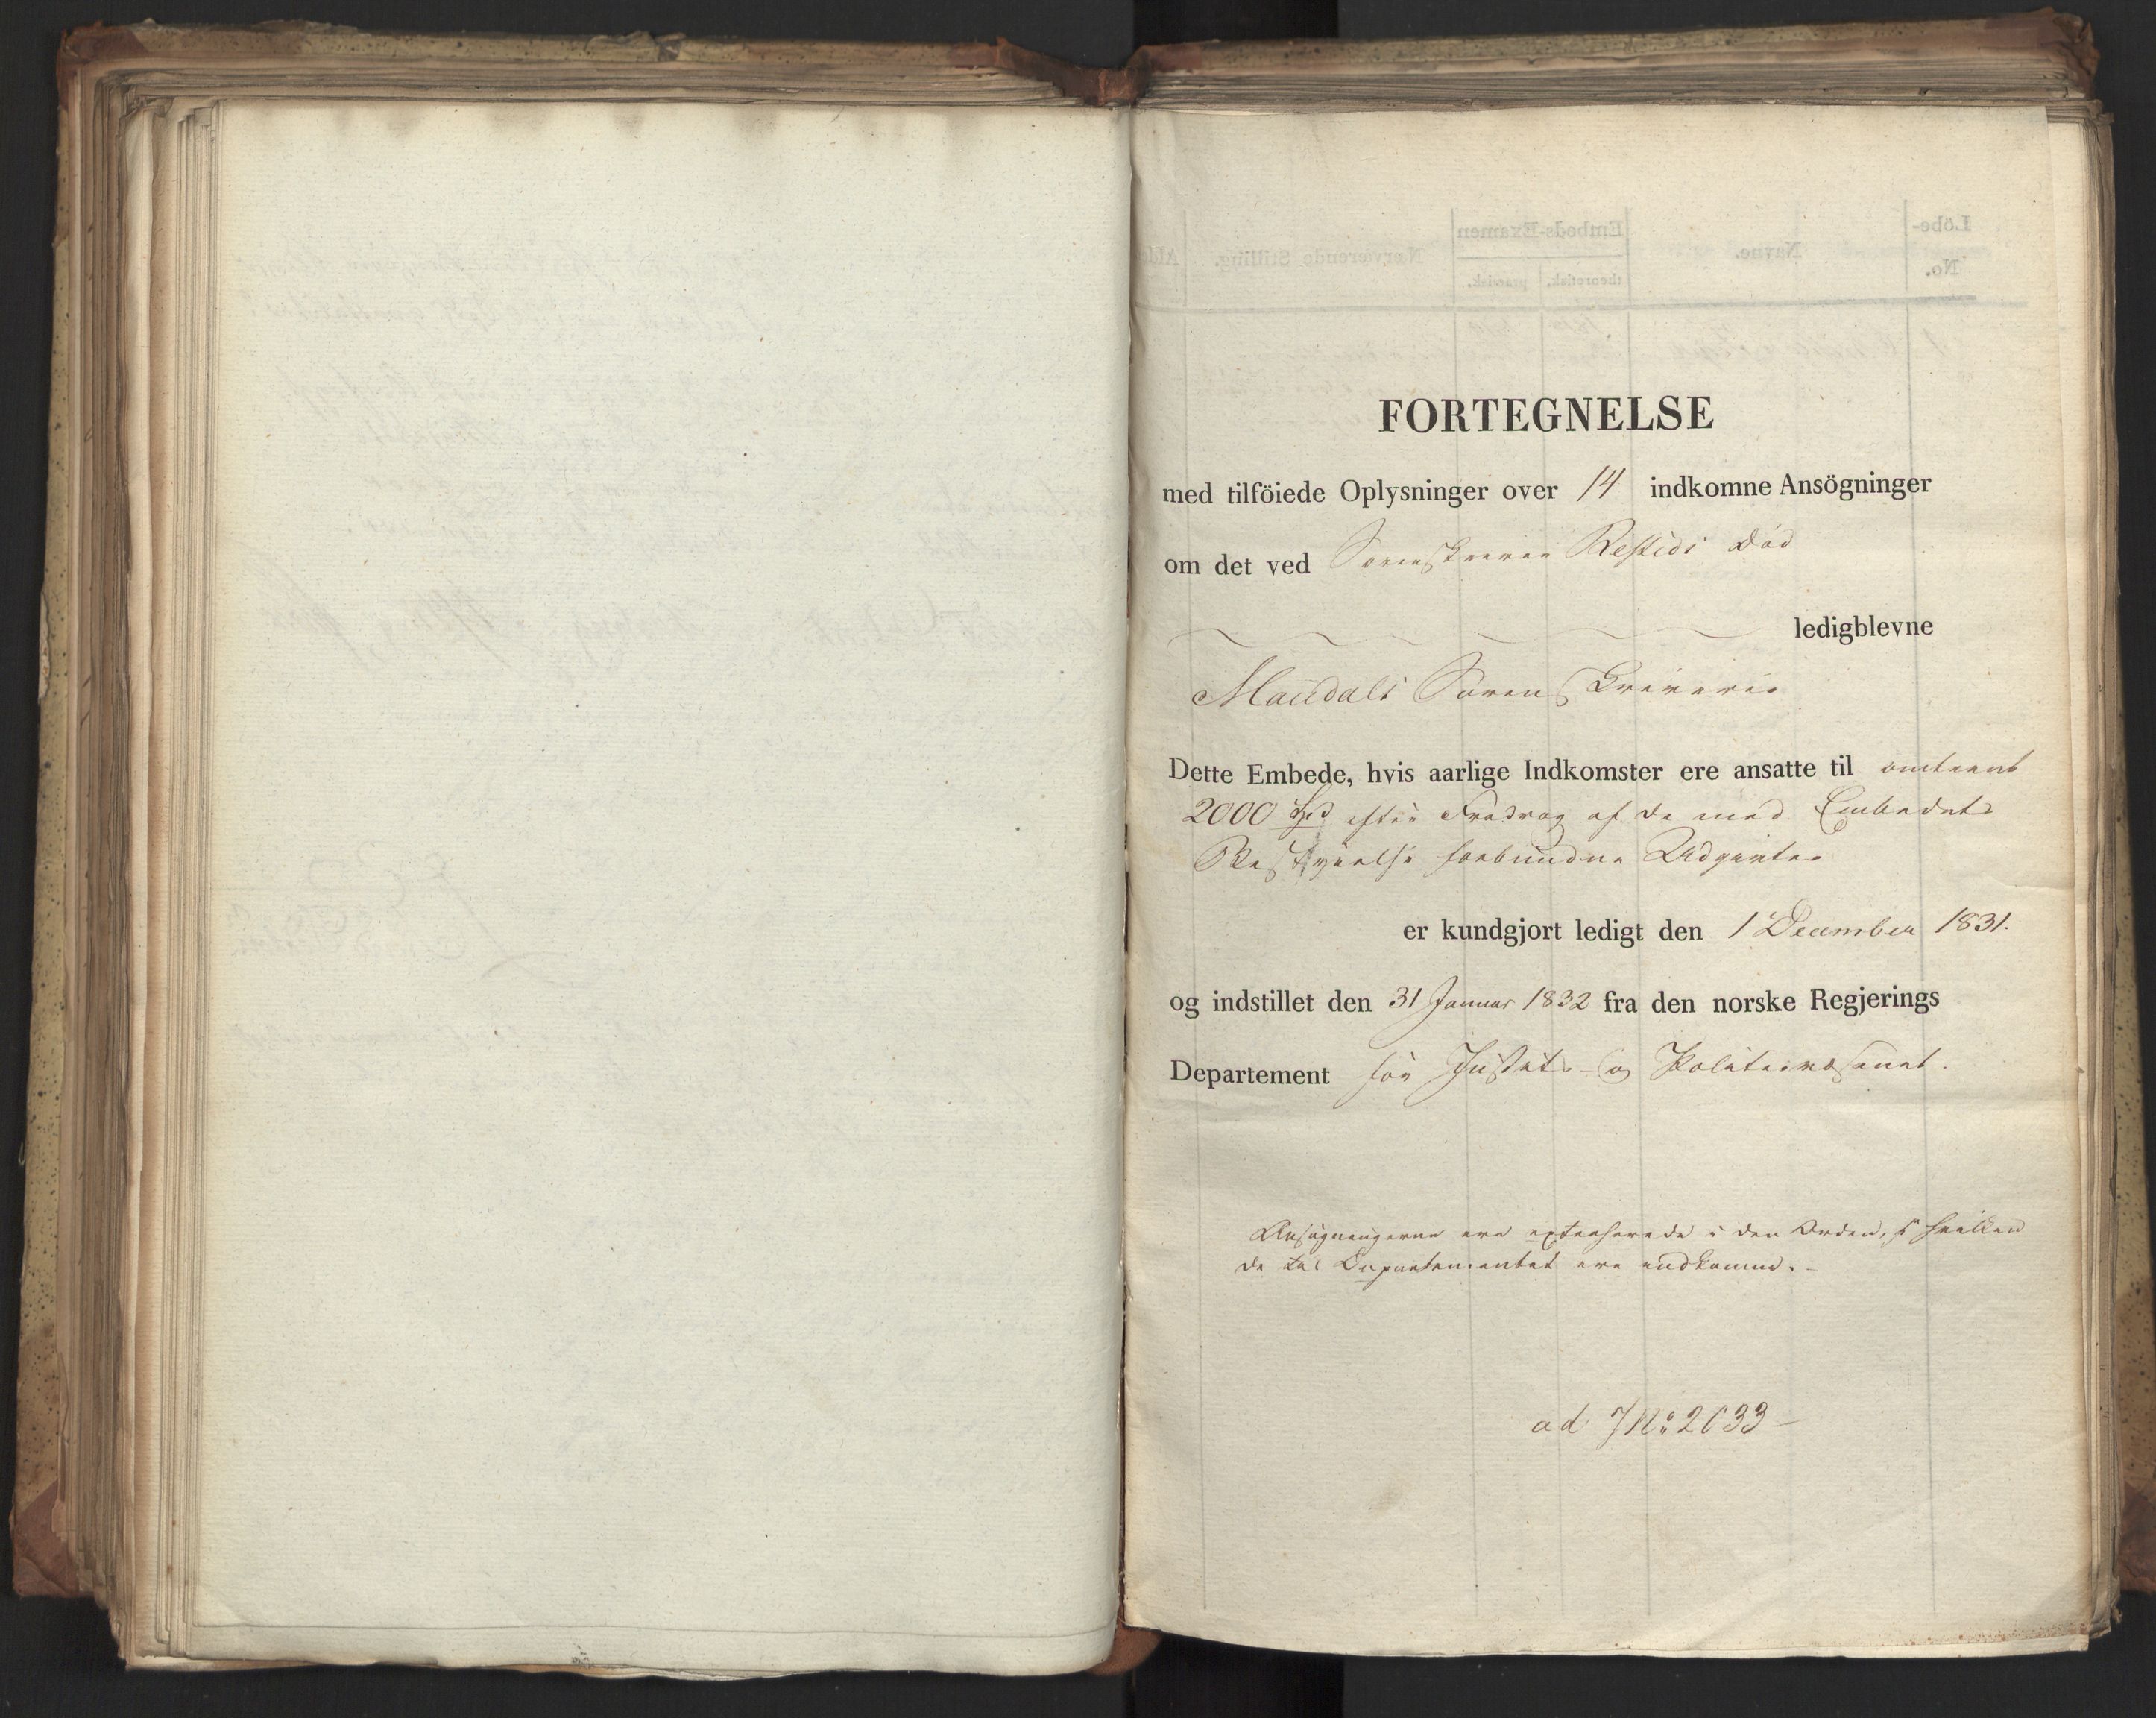 FORTEGNELSE
med tilföiede Oplysninger over 14 indkomne Ansögninger
om det ved Sorenskriver Død
ledigblevne
Mandals Sorenskriverie
Dette Embede, hvis aarlige Indkomster ere ansatte til omtrent
2000 Spd efter Fradrag af de med Embedets
Bestyrelse forbundne Udgivter
er kundgjort ledigt den 1 December 1831.
og indstillet den 31 Januar 1832 fra den norske Regjerings
Departement for Justits- og Politievæsenet.
Ansøgningerne ere extraherede i den Orden, i hvilken
de til Departementet ere indkomne.-
ad JNo 2033-
Löbe-
No.
Navne.
Embeds-Examen
theoretisk. practisk.
Nærværende Stilling.